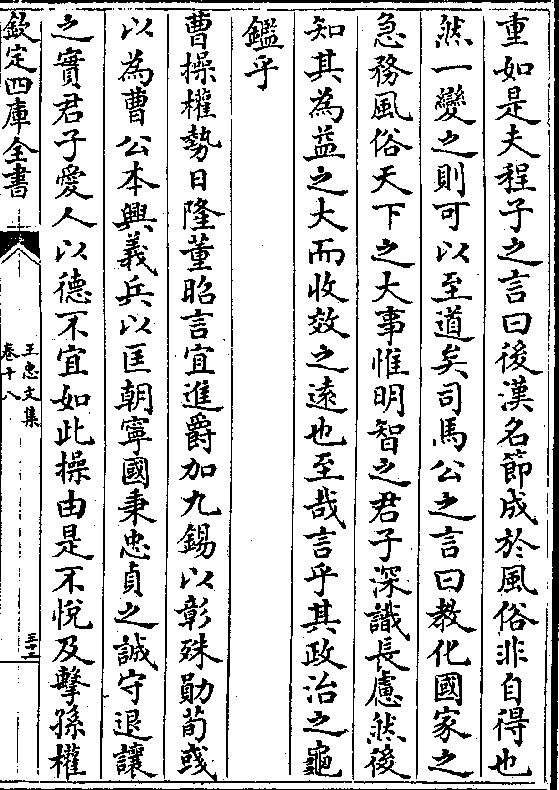 重如是夫程子之言曰後漢名節成於風俗非自得也
然一變之則可以至道矣司馬公之言曰教化國家之
急務風俗天下之大事惟明智之君子深識長慮然後
知其為益之大而收效之遠也至哉言乎其政治之龜
鑑乎
曹操權勢日隆董昭言宜進爵加九錫以彰殊勛荀彧
以為曹公本興義兵以匡朝寧國秉忠貞之誠守退讓
之實君子愛人以德不宜如此操由是不悅及擊孫權
欽定四庫全書
王忠文集
卷十八
三十二